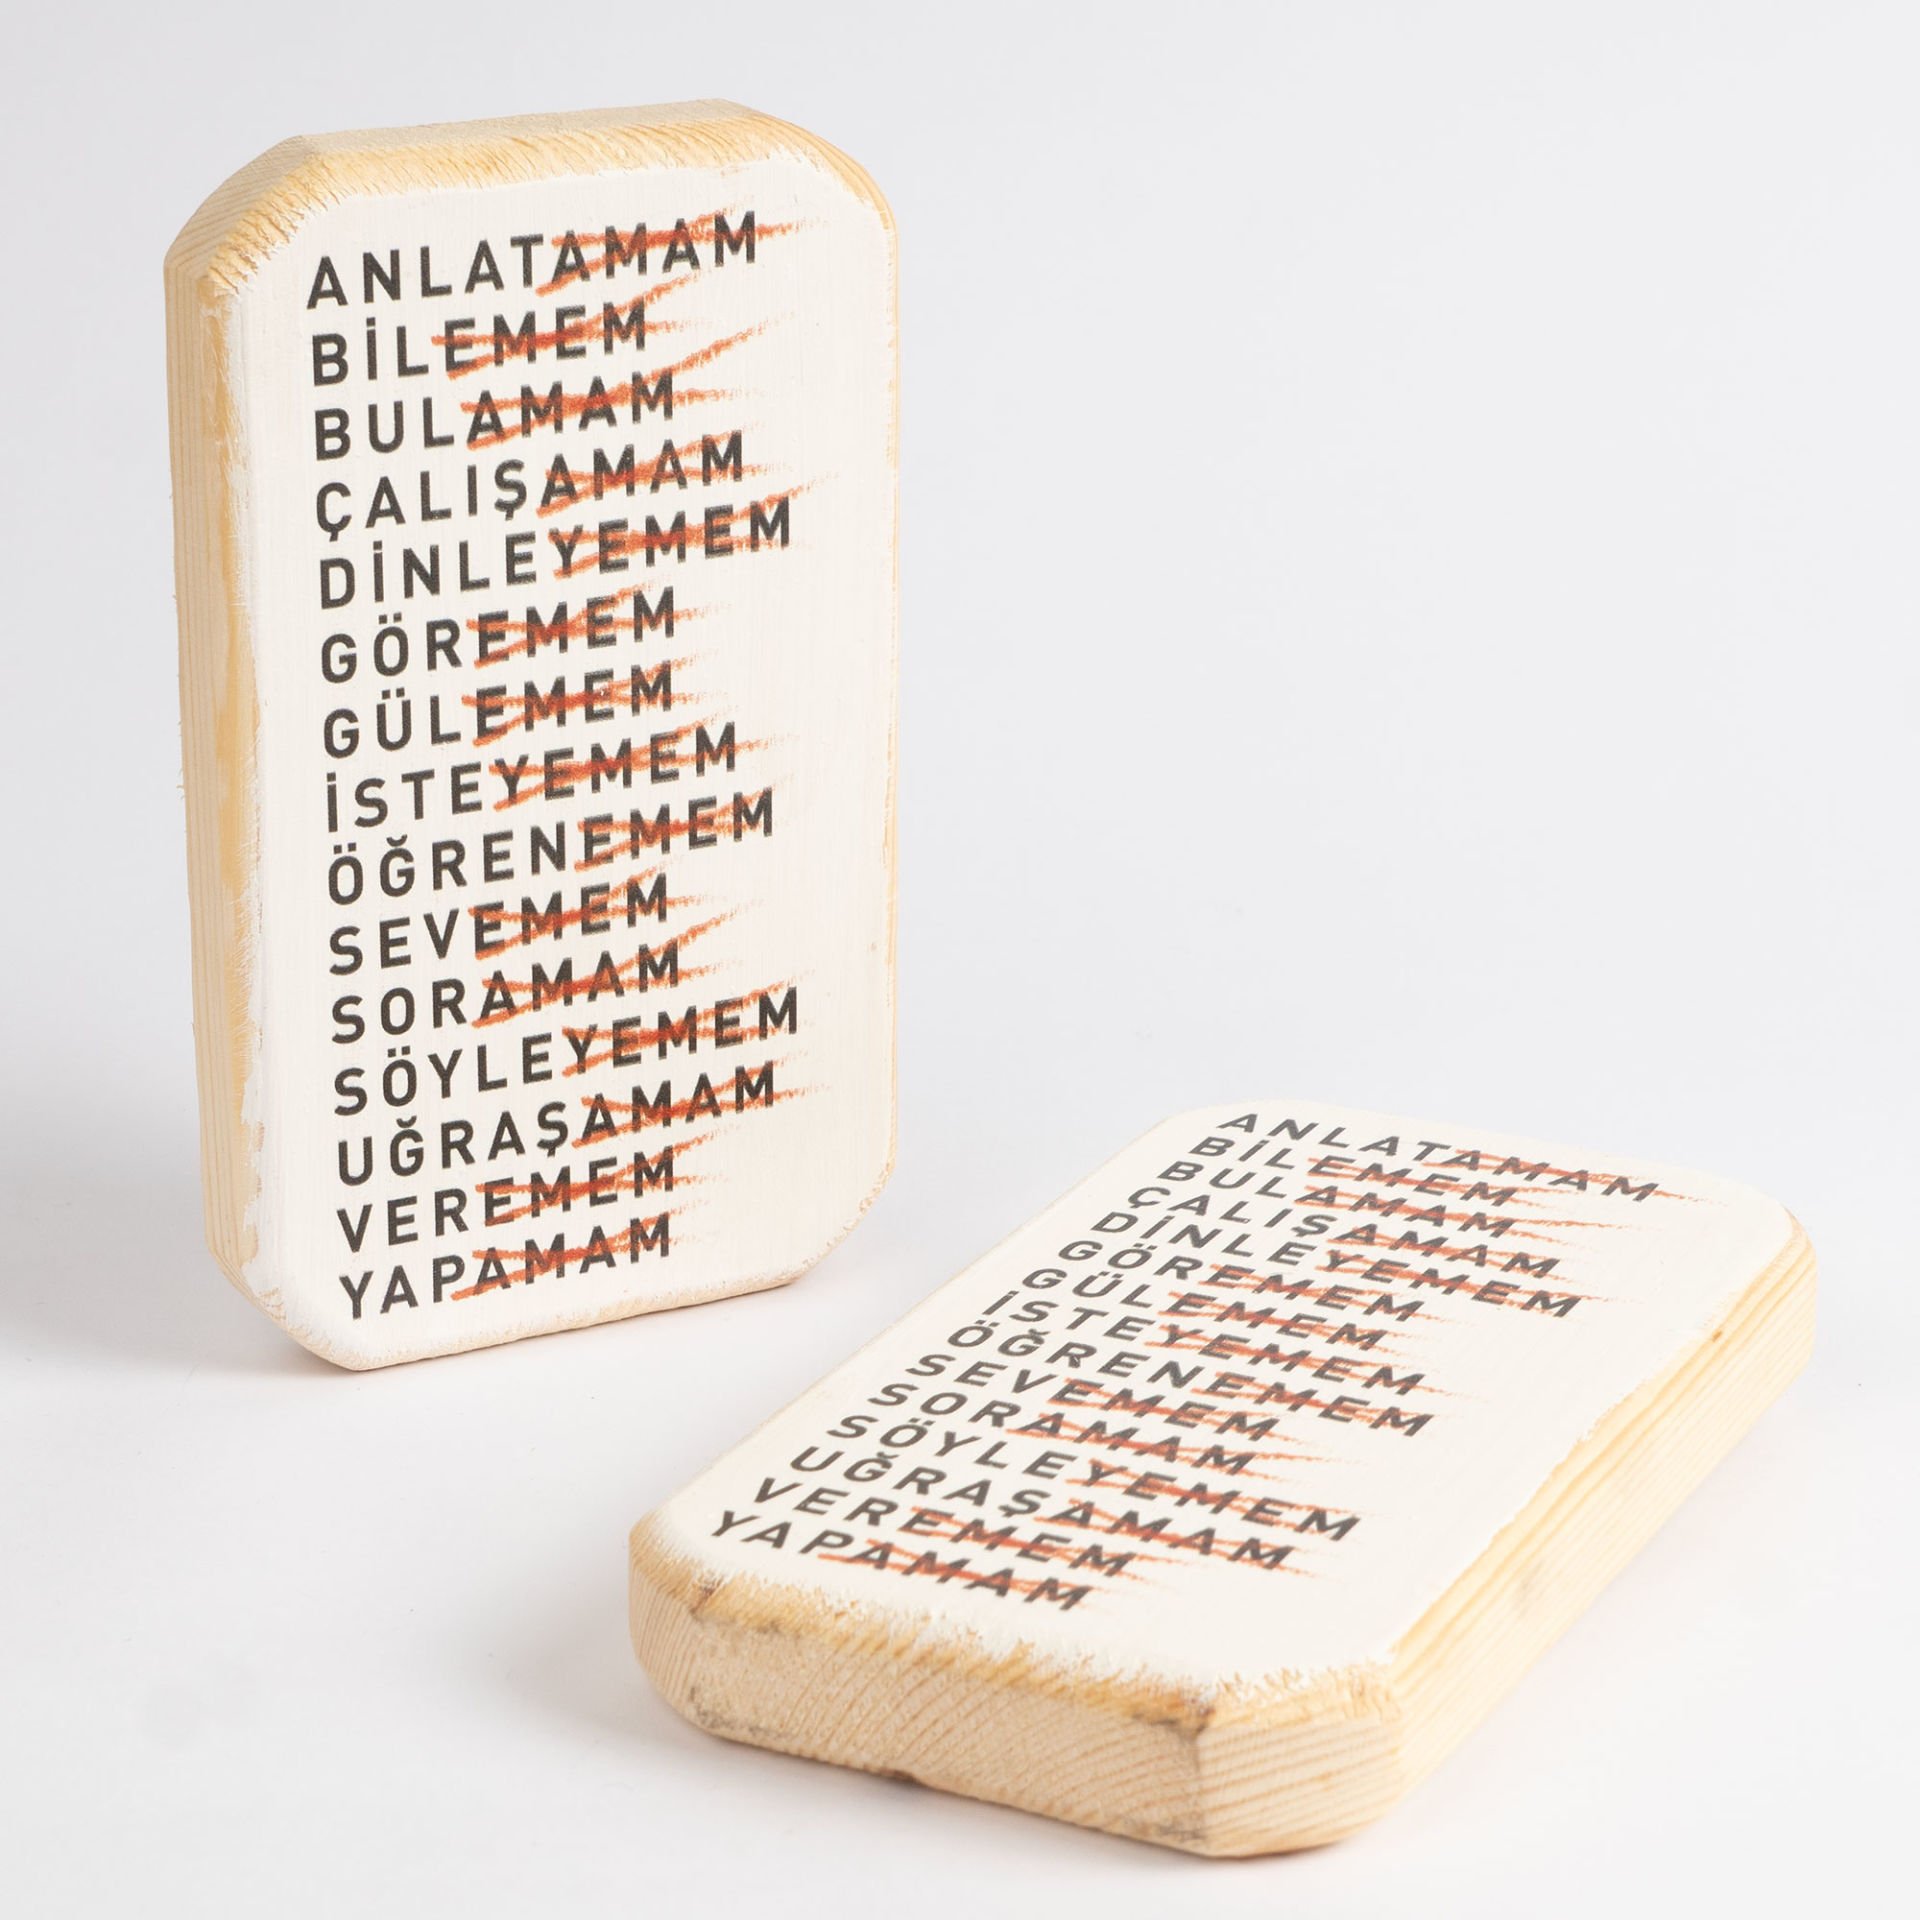 ANLATAMAM
BİLEMEM
BULAMAM
ÇALIŞAMAM
DİNLEYEMEM
GÖREMEM
GÜLEMEM
İSTEYEMEM
ÖĞRENEMEM
SEVEMEM
SORAMAM
SÖYLEYEMEM
UĞRAŞAMAM
VEREMEM
YAPAMAM
ANLATAMAM
BİLEMEM
BULAMAM
ÇALIŞAMAM
DİNLEYEMEM
GÖREMEM
GÜLEMEM
İSTEYEMEM
ÖĞRENEMEM
SEVEMEM
SORAMAM
SÖYLEYEMEM
UĞRAŞAMAM
VEREMEM
YAPAMAM